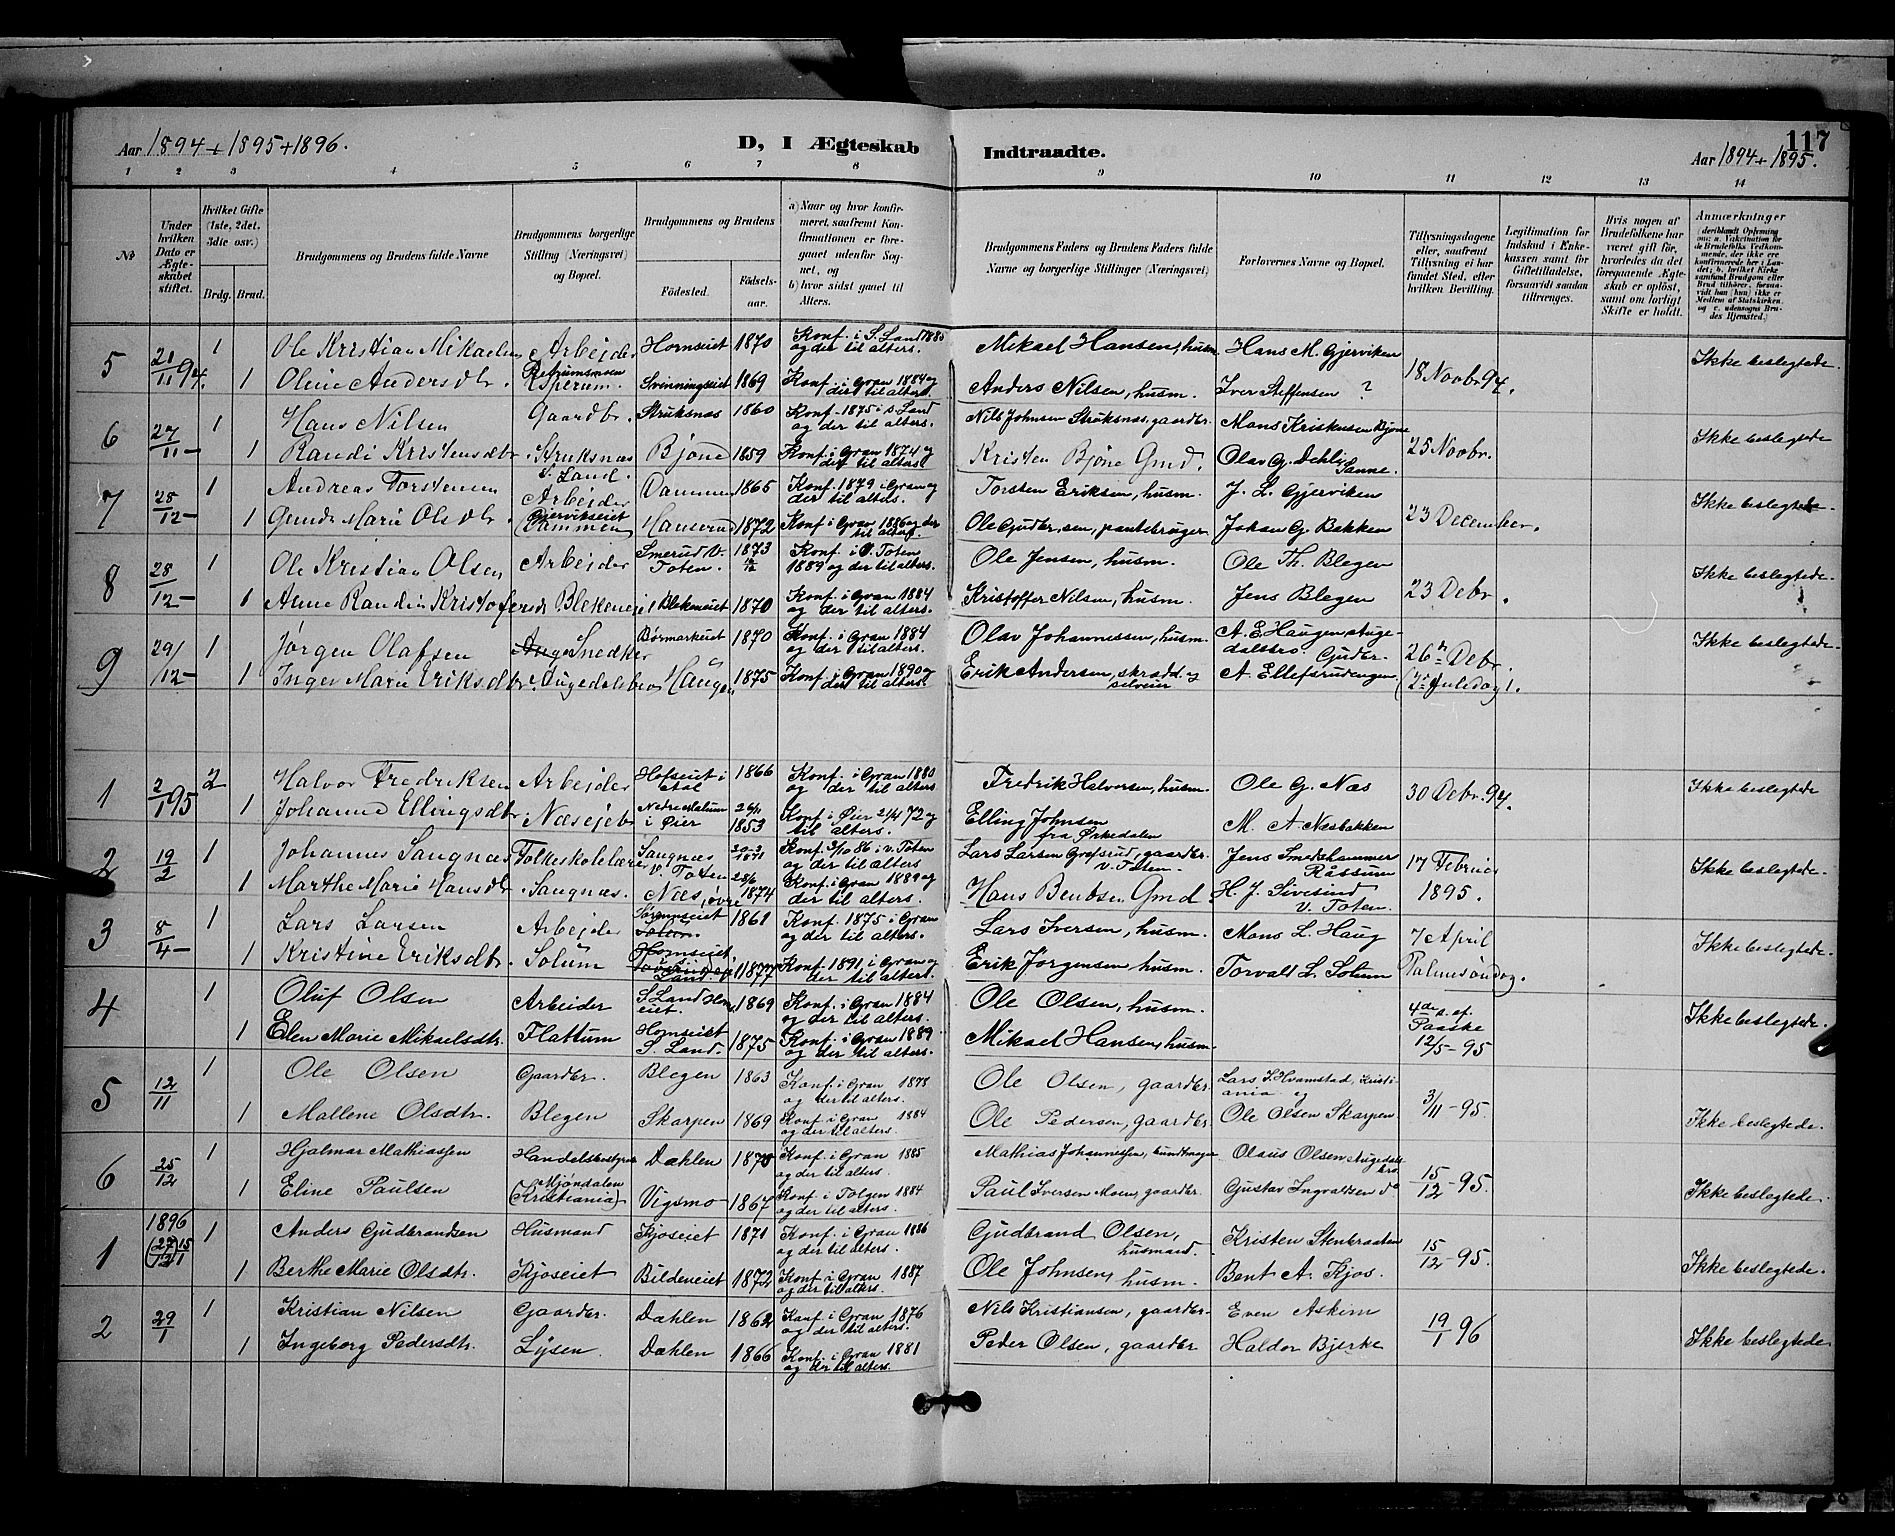 Aar 1894 + 1895 + 1896.
D, I Ægteskab Indtraadte.
Aar 1894 + 1895.
117
1 2 3 4 5 6 7 8 9 10 11 12 13 14
No
Under hvilken Dato er Ægteskabet stiftet.
Hvilket Gifte (1ste, 2det, 3die osv.)
Brdg. Brud.
Brudgommens og Brudens fulde Navne
Brudgommens borgerlige Stilling (Næringsvei) og Bopæl.
Brudgommens og Brudens
Fødested. Fødselsaar.
a) Naar og hvor konfirmeret, saafremt Konfirmationen er foregaaet udenfor Sognet, og
b) hvor sidst gaaet til Alters.
Brudgommens Faders og Brudens Faders fulde Navne og borgerlige Stillinger (Næringsvei)
Forlovernes Navne og Bopæl.
Tillysningsdagene eller, saafremt Tillysning ei har fundet Sted, efter hvilken Bevilling.
Legitimation for Indskud i Enkekassen samt for Giftetilladelse, forsaavidt saadan tiltrænges.
Hvis nogen af Brudefolkene har været gift før, hvorledes da det foregaaende Ægteskab er opløst, samt om lovligt Skifte er holdt.
Anmærkninger (deriblandt Oplysning om: a. Vakcination for de Brudefolks Vedkommende, der ikke ere konfirmerede her i Landet; b. hvilket Kirkesamfund Brudgom eller Brud tilhører, forsaavidt han (hun) ikke er Medlem af Statskirken, og c. udensogns Brudes Hjemsted.)
5 21/11 94. 1 Ole Kristian Mikaelsen Arbejder Hornseiet 1870 Konf. i S. Land 1885 og der til alters. Mikael Hansen, husm. Hans M. Gjerviken 18 Novbr 94. Ikke beslegtede.
1 Oline Andersdtr. Sperum. Svinningseiet 1869 Konf. i Gran 1884 og der til alters. Anders Nilsen, husm. Iver Steffensen ?
6 27/11 - 1 Hans Nilsen Gaardbr. Struksnæs 1860 Konf. 1875 i S. Land og der til alters. Nils Johnsen Struksnæs, gaardbr. Mons Kristensen Bjone 25 Novbr. Ikke beslegtede
1 Randi Kristensdtr. Struksnæs S. Land. Bjone 1859 Konf. i Gran 1874 og der til alters. Kristen Bjøne Gmd. Olav G. Dehli Sanne.
7 28/12 - 1 Andreas Torstensen Arbejder Dammen 1865 Konf. 1879 i Gran og der til alters. Torsten Eriksen, husm. J. L. Gjerviken 23 December. Ikke beslegtede.
1 Gunda Marie Olsdtr. Gjervikseiet Dammen Hanserud 1872 Konf. i Gran 1886 og der til alters. Ole Gudbr.sen, pantebruger Johan G. Bakken
8 28/12 - 1 Ole Kristian Olsen Arbejder Smerud V. Toten. 1873 Konf. i V. Toten 1889 og der til alters. Ole Jensen, husm. Ole Th. Blegen 23 Debr. Ikke beslegtede.
1 Anne Randine Kristofersdr. Blekeneiet Blekeneiet 1870 Konf. i Gran 1884 og der til alters. Kristoffer Nilsen, husm. Jens Blegen
9 29/12 - 1 Jørgen Olafsen Snedker Børmarkeiet 1870 Konf. i Gran 1884 og der til alters. Olav Johannessen, husm. A. E. Haugen Augedalsbro 26de Debr. Ikke beslegtede.
1 Inger Marie Eriksdtr. Augedalsbro Haugen 1875 Konf. i Gran 1890 og der til alters. Erik Andersen, skrædd. og selveier A. Ellefsrudengen (2den Juledag).
1 2/1 95 2 Halvor Fredriksen Arbejder Hofseiet i 1866 Konf. i Gran 1880 og der til alters Fredrik Halvorsen, husm. Ole G. Næs 30 Debr. 94. Ikke beslegtede
1 Johanne Ellingsdtr. Næsejet i Øier 26/11 1853 Konf. i Øier 21/4 72 og til alters. Elling Johnsen fra Ørkedalen M. A. Næsbakken
2 19/2 1 Johannes Sangnæs Folkeskolelærer Sangnæs V. Toten 20-2 1871 Konf. 3/10 86 i V. Toten og der til alters Lars Larsen Grefsrud, gaardbr. V. Toten. Jens Smedshammer Rissum 17 Februar 1895. Ikke beslegtede.
1 Marthe Marie Hansdtr. Sangnæs. Næs, øvre 28/6 1874 Konf. i Gran 1889 og der til alters. Hans Bentsen Gmd H. J. Sivesind V. Toten.
3 8/4 - 1 Lars Larsen Arbejder 1861 Konf. 1875 i Gran og der til alters. Lars Iversen, husm. Mons L. Haug 7 April Ikke beslegtede.
1 Kristine Eriksdtr. Solum Hornseiet, S. Land. 1877 Konf. 1891 i Gran og der til alters. Erik Jørgensen husm. Torvald L. Solum Palmesøndag.
4 1 Oluf Olsen Arbeider S. Land Horneiet. 1869 Konf. i Gran 1884 og der til alters. Ole Olsen, husm. 4de s. ef. Paaske 12/5 - 95 Ikke beslegtede.
1 Elen Marie Mikaelsdtr. Flattum Hornseiet S. Land. 1875 Konf. i Gran 1889. og der til alters. Mikael Hansen, husm.
5 12/11 1 Ole Olsen Gaardbr. Blegen 1863 Konf. i Gran 1878 og der til alters. Ole Olsen, gaardbr. Lars J. Hvamstad, Kristiania og 3/11 - 95. Ikke beslegtede.
1 Mallene Olsdtr. Blegen Skarpen 1869 Konf. i Gran 1884 og der til alters. Ole Pedersen, gaardbr. Ole Olsen Skarpen
6 25/12 1 Hjalmar Mathiassen Handelsbestyrer Dæhlen 1870 Konf. i Gran 1885 og der til alters. Mathias Johannessen, bundtmager Olaus Olsen Augedalsbro 15/12 - 95. Ikke beslegtede.
1 Eline Paulsen Mjøndalen (Kristiania) Vigsmo 1867 Konf. i Tolgen 1884 og der til alters. Paul Iversen Moen, gaardbr. Gustav Ingvaldsen do
1 1896 (27/12) 15/1 1 Anders Gudbrandsen Husmand Kjoseiet 1871 Konf. i Gran 1886 og der til alters. Gudbrand Olsen, husmand. Kristen Stenbraaten 15/12 - 95. Ikke beslegtede.
1 Berthe Marie Olsdtr. Kjoseiet Bildeneiet 1872 Konf. i Gran 1887 og der til alters. Ole Johnsen, husm. Bent A. Kjos.
2 29/1 1 Kristian Nilsen Gaardbr. Dæhlen 1862 Konf. i Gran 1876 og der til alters. Nils Kristiansen, gaardbr. Even Askim 19/1 96 Ikke beslegtede
1 Ingeborg Pedersdtr. Lysen. Dæhlen 1866 Konf. i Gran 1881 og der til alters. Peder Olsen, gaardbr Haldor Bjerke